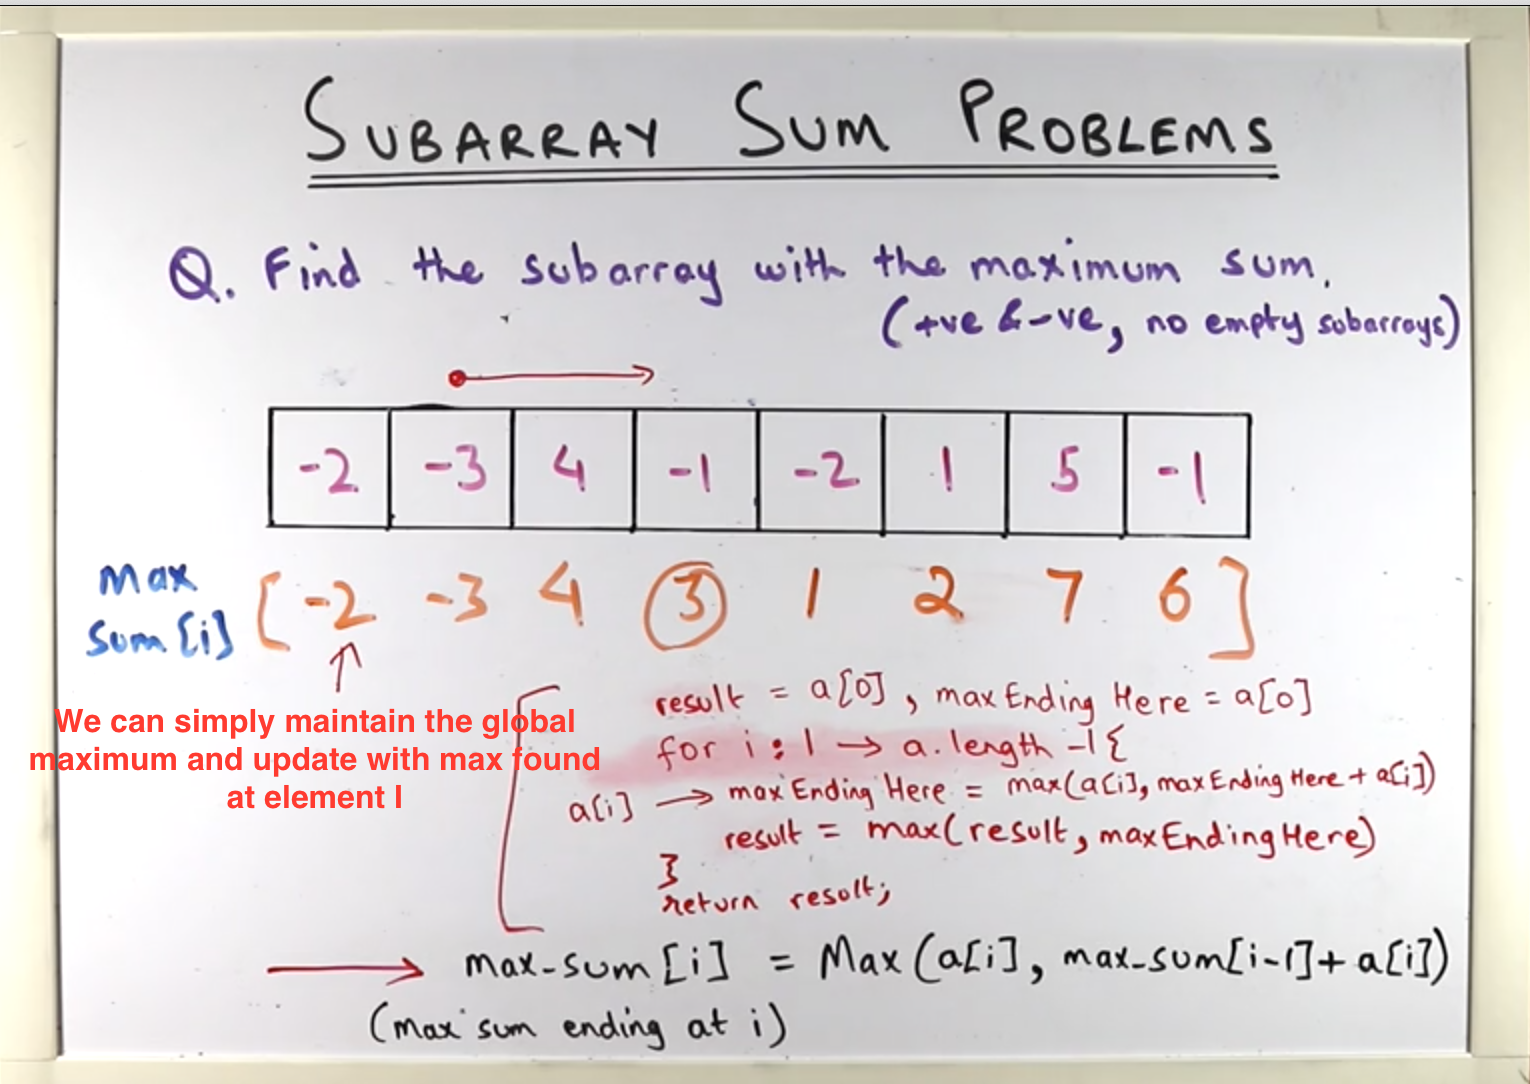 SUBARRAY SUM PROBLEMS
Q. Find the subarray with the maximum sum.
(+ve & -ve, no empty subarrays)
-2 -3 4 -1 -2 1 5 -1
Max sum[i] [-2 -3 4 3 1 2 7 6]
We can simply maintain the global
maximum and update with max found
at element I
result = a[0], maxEndingHere = a[0]
for i : 1 → a.length -1 {
a[i] → maxEndingHere = max(a[i], maxEndingHere + a[i])
result = max(result, maxEndingHere)
}
return result;
→ max-sum[i] = Max(a[i], max-sum[i-1] + a[i])
(max sum ending at i)